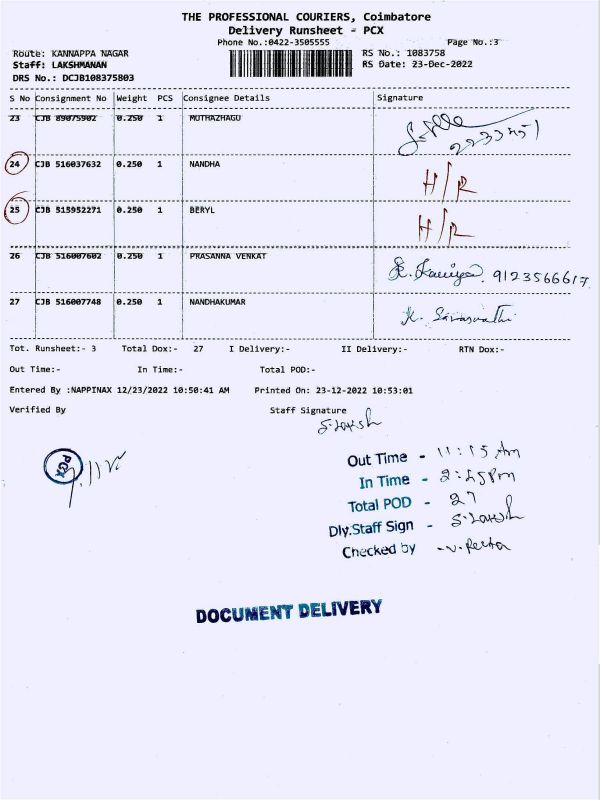 THE PROFESSIONAL COURIERS, Coimbatore
Delivery Runsheet - PCX
Phone No.:0422-3505555 Page No.:3
Route: KANNAPPA NAGAR RS No.: 1083758
Staff: LAKSHMANAN RS Date: 23-Dec-2022
DRS No.: DCJB108375803
S No Consignment No Weight PCS Consignee Details Signature
23 CJB 89075902 0.250 1 MUTHAZHAGU
2233451
24 CJB 516037632 0.250 1 NANDHA H/R
25 CJB 515952271 0.250 1 BERYL H/R
26 CJB 516007602 0.250 1 PRASANNA VENKAT 9123566617
27 CJB 516007748 0.250 1 NANDHAKUMAR K. Saraswathi
Tot. Runsheet:- 3 Total Dox:- 27 I Delivery:- II Delivery:- RTN Dox:-
Out Time:- In Time:- Total POD:-
Entered By :NAPPINAX 12/23/2022 10:50:41 AM Printed On: 23-12-2022 10:53:01
Verified By Staff Signature
S.Laksh
PCX
Out Time - 11:15 Am
In Time - 2:45pm
Total POD - 27
Dly.Staff Sign - S.Laksh
Checked by -
DOCUMENT DELIVERY